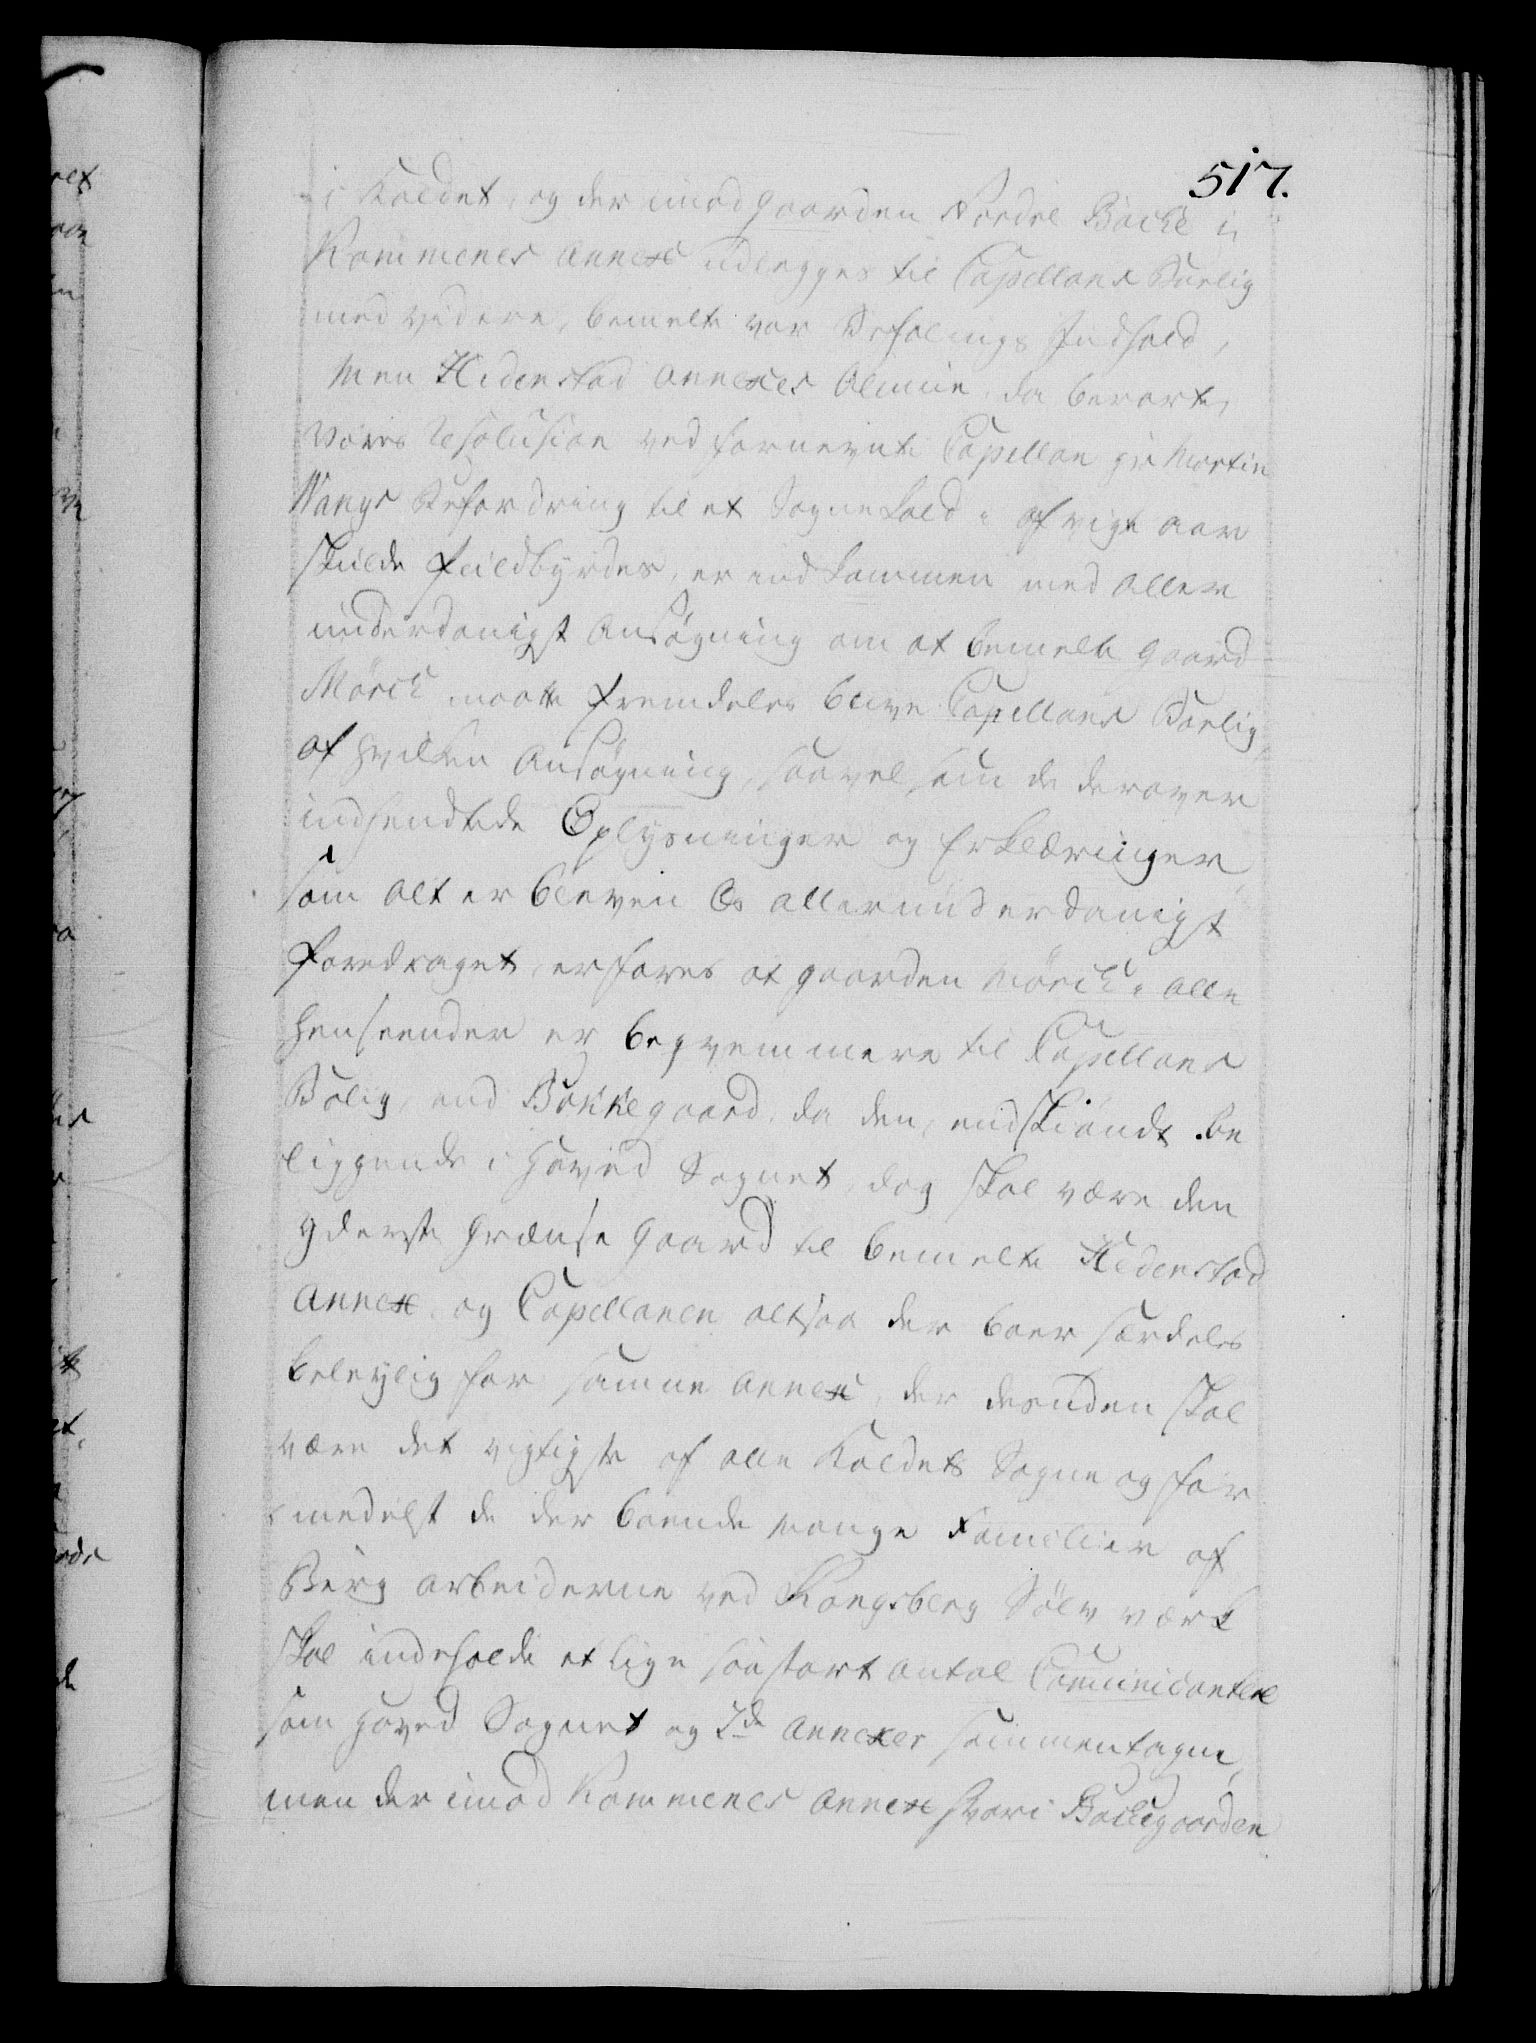 517.
i Kaldet, og der imod gaarden Nordre Bache i
Kommenes Annex udlegges til Capellans Boelig
med videre, bemelte vor Befalings Indhold,
Men Hedenstad Annexes Almue, da berørte
Vores Resolusion ved fornevnte Capellan Hr Morten
Wangs Befordring til et Sognekald i afvigte Aar
skulde fuldbyrdes, er indkommen med aller
underdanigst Ansøgning om at bemelte Gaard
Mørch maatte fremdeles blive Capellans Boelig
af hvilken Ansøgning, saavel som de derover
indhendtede Oplysninger og Erklæringer,
som alt er bleven Os allerunderdanigst
foredraget, erfares at gaarden Mørch i alle
henseender er beqvemmere til Capellans
Bolig, end Bakkegaard, da den, endskiøndt be
liggende i Hoved Sognet, dog skal være den
yderste Grændse Gaard til bemelte Hedenstad
Annex, og Capellanen altsaa der boer særdeles
beleylig for samme Annex, der desuden skal
være det vigtigste af alle Kaldets Sogne og for
medelst de der boende mange Familier af
Berg arbeiderne ved Kongsberg Sølv værk
skal indeholde et lige saa stort antal Communicantere
som Hoved Sognet og 2de Annexer sammentagne,
men der imod Kommenes Annex hvori Bachegaarden